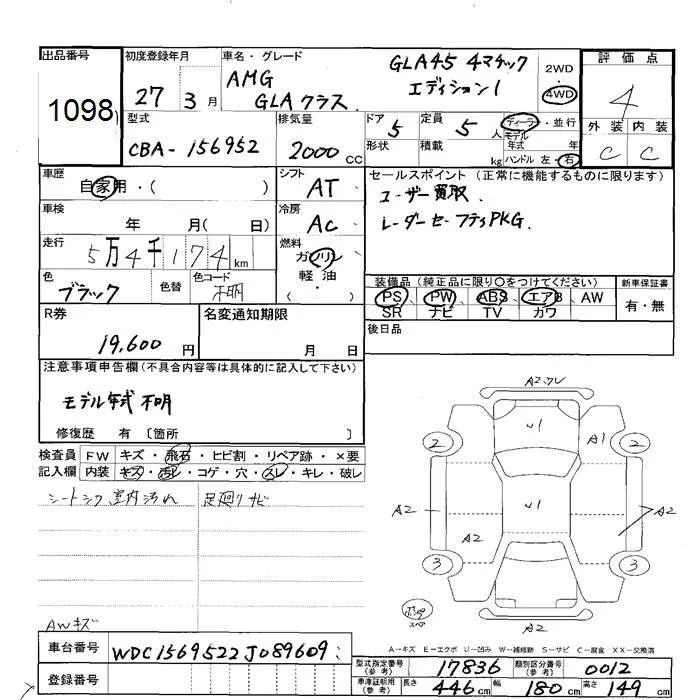 出品番号 1098
初度登録年月 27 3月
車名・グレード AMG GLAクラス
GLA45 4マチック
エディション1
2WD
4WD
評価点 4
外装 内装
C C
型式 CBA-156952
排気量 2000CC
ドア 5 定員 5人
形状 積載 kg
ディーラー・並行
モデル年式 年
ハンドル 左・右
車歴 自家用・( )
シフト AT
車検 年 月( 日)
冷房 AC
走行 5万4千174km
燃料 ガソリン
軽・油
( )
色 ブラック 色替 色コード 不明
セールスポイント(正常に機能するものに限ります)
ユーザー買取.
レーダーセーフティPKG.
装備品(純正品に限り○をつけてください) 新車保証書
PS、PW、ABS、エアB AW
SR ナビ TV カワ
有・無
R券 19,600円
名変通知期限 月 日
後日品
注意事項申告欄(不具合内容等は具体的に記入して下さい)
モデル年式不明
修復歴 有 〔箇所 〕
検査員記入欄
FW キズ・飛石・ヒビ割・リペア跡・×要
内装 キズ・汚レ・コゲ・穴・スレ・キレ・破レ
シートシワ 室内汚れ 足廻りサビ
AWキズ
A2.ワレ
U1
A1
2 2
U1
A2 A2
A2
3 3
A2
スペア
A−キズ E−エクボ U−凹み W−補修跡 S−サビ C−腐食 XX−交換済
車台番号 WDC1569522J089609
登録番号
型式指定番号(参考) 17836 類別区分番号(参考) 0012
車庫証明用(参考) 長さ 446cm 幅 180cm 高さ 149cm